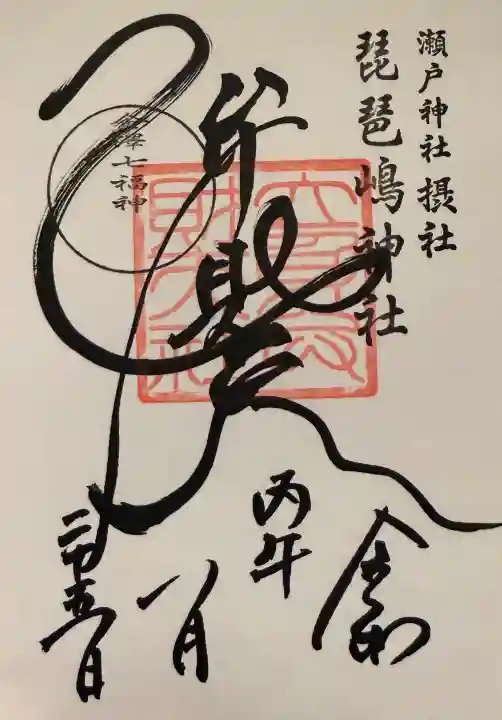 瀬戸神社摂社
琵琶嶋神社
弁財天
金澤七福神
令和
丙午
八月
二十五日